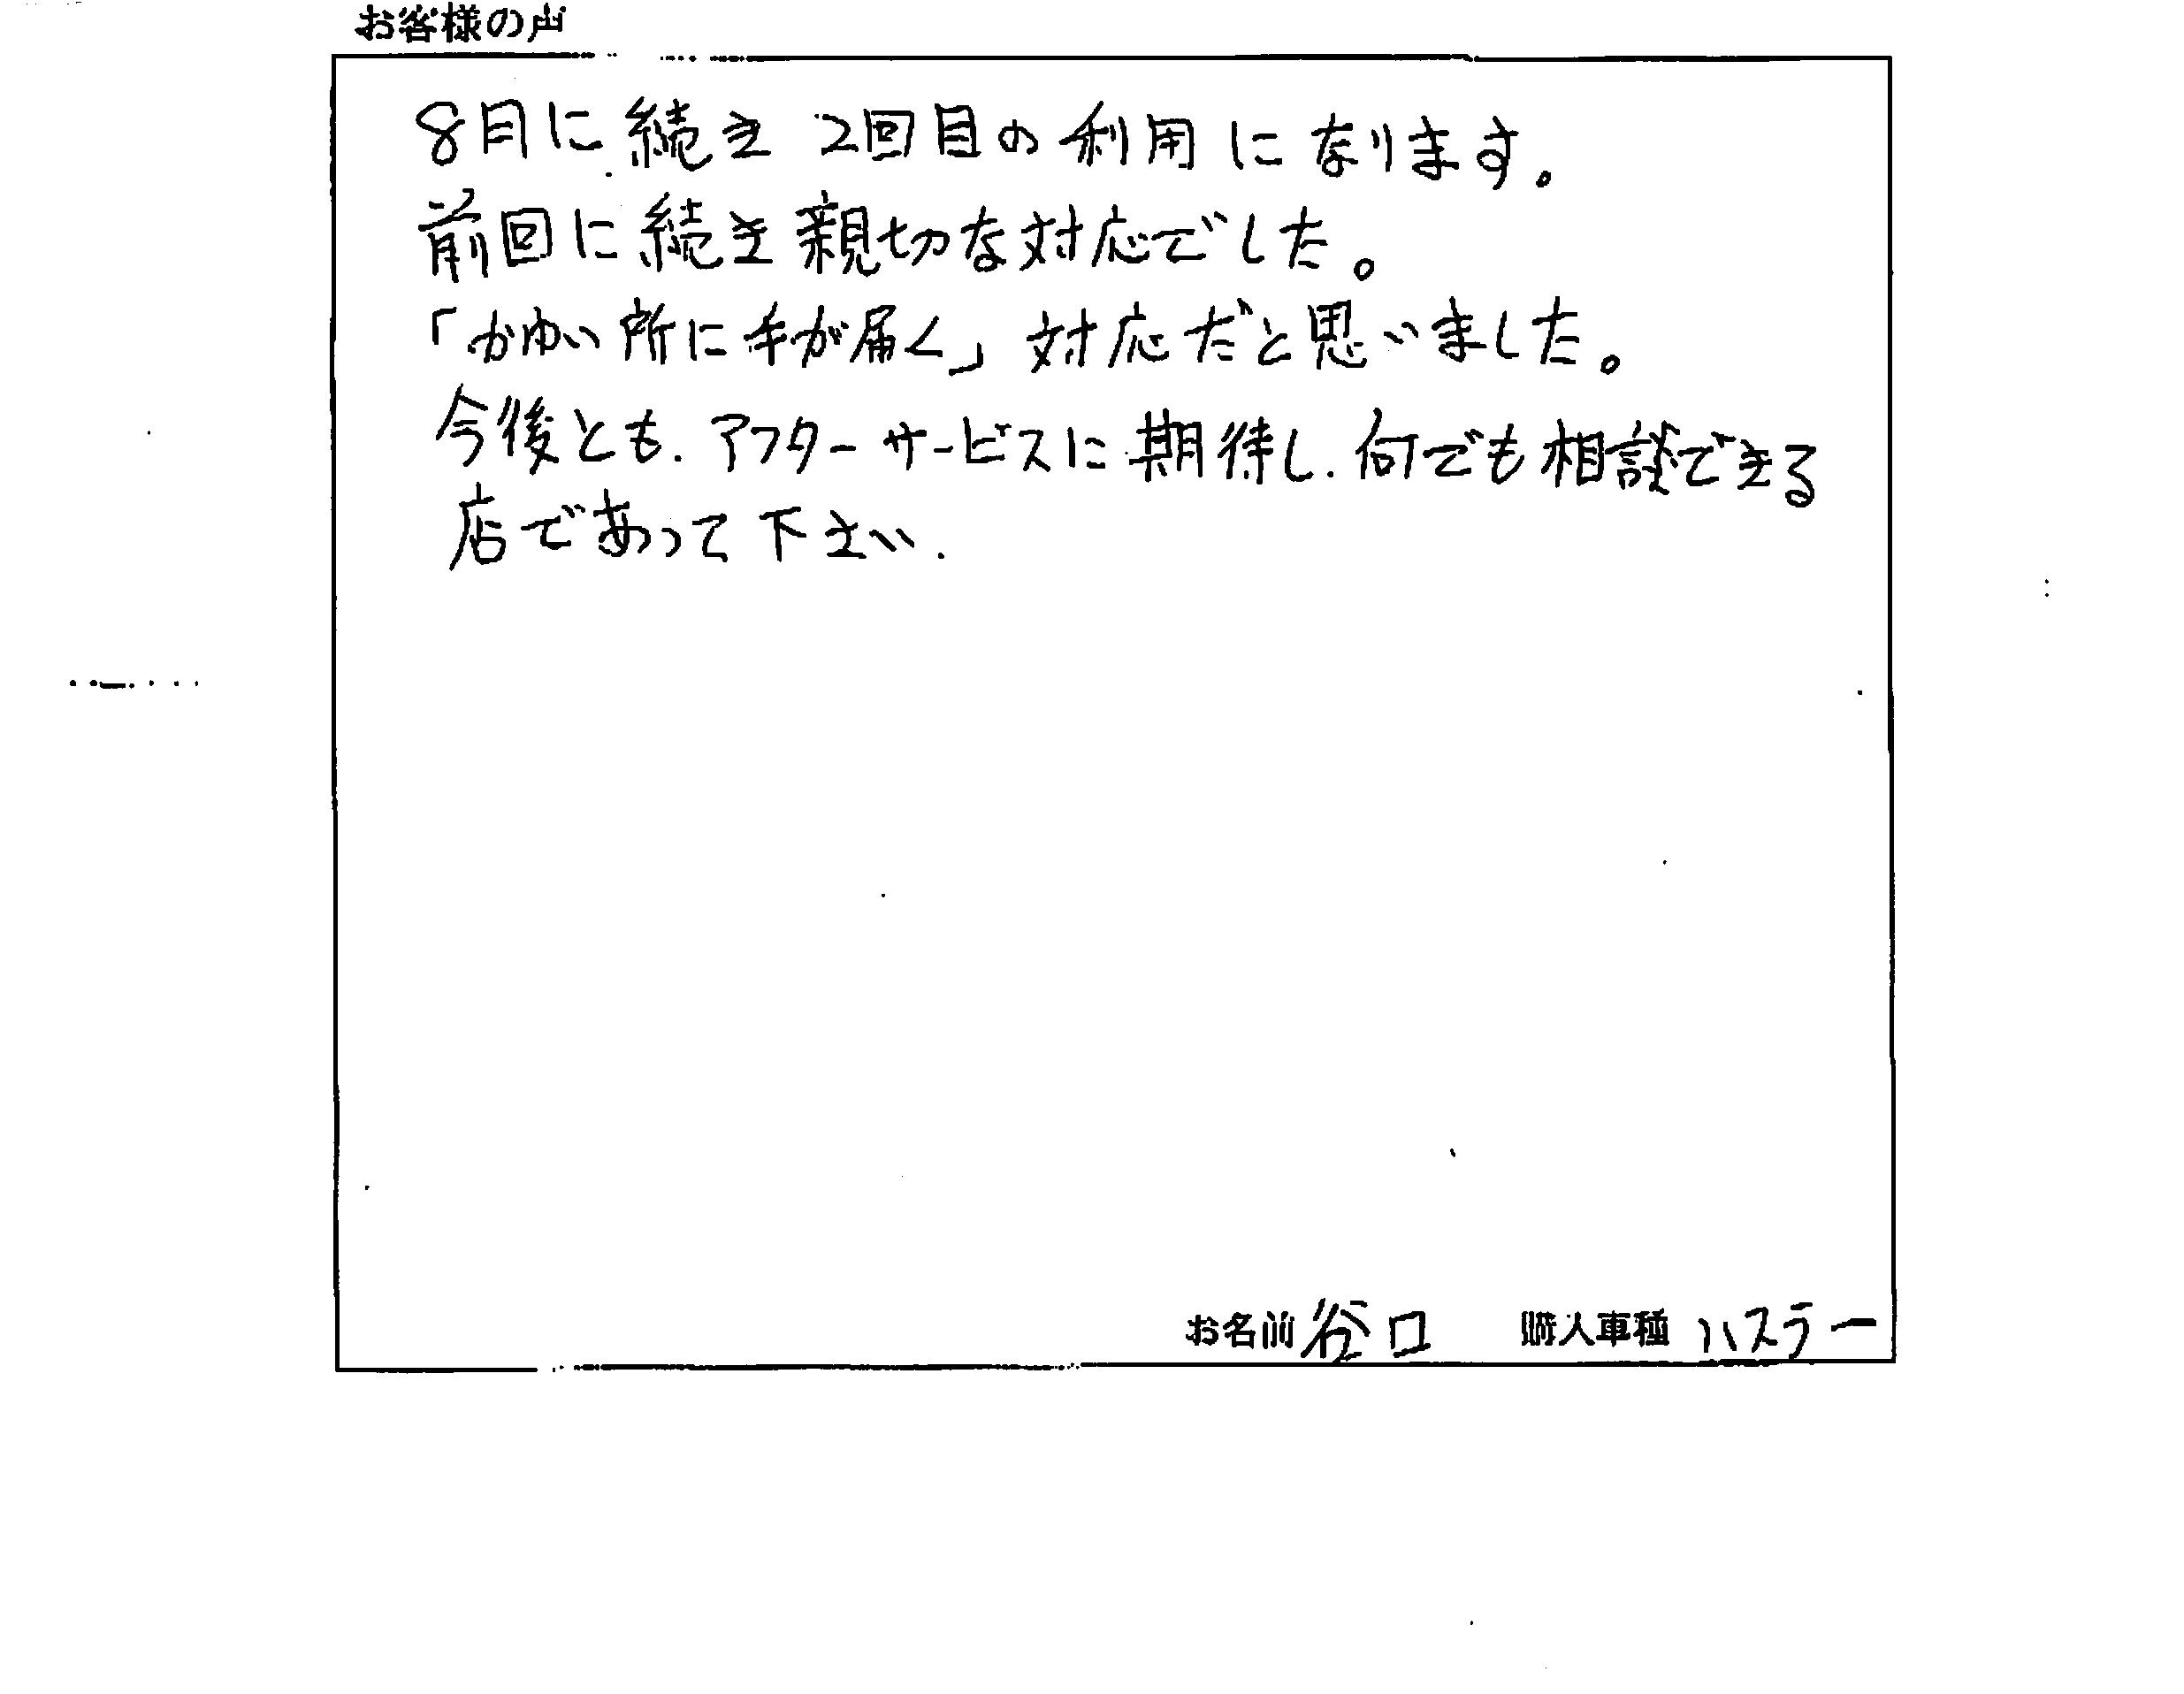 お客様の声
8月に続き 2回目の利用になります。
前回に続き親切な対応でした。
「かゆい所に手が届く」対応だと思いました。
今後とも、アフターサービスに期待し、何でも相談できる
店であって下さい.
お名前 谷口 購入車種 ハスラー